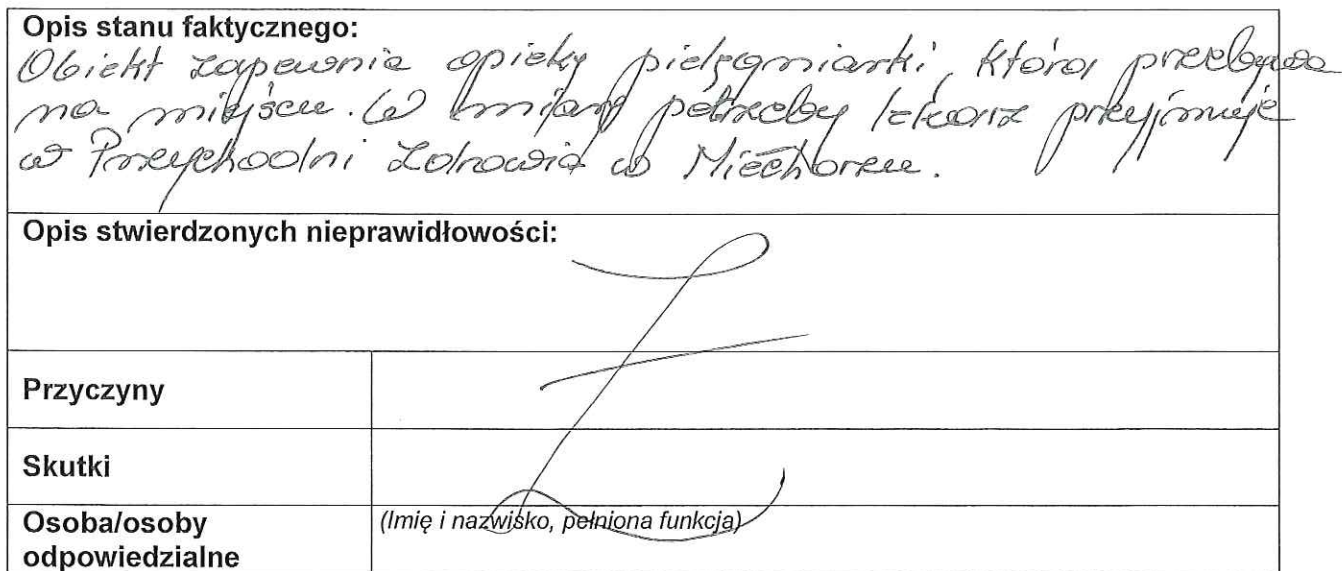 Opis stanu faktycznego:
Obiekt zapewnia opiekę pielęgniarki, która przebywa
na miejscu. W miarę potrzeby lekarz przyjmuje
w Przychodni Zdrowia w Miechorzu.
Opis stwierdzonych nieprawidłowości:
Przyczyny
Skutki
Osoba/osoby
odpowiedzialne
(Imię i nazwisko, pełniona funkcja)